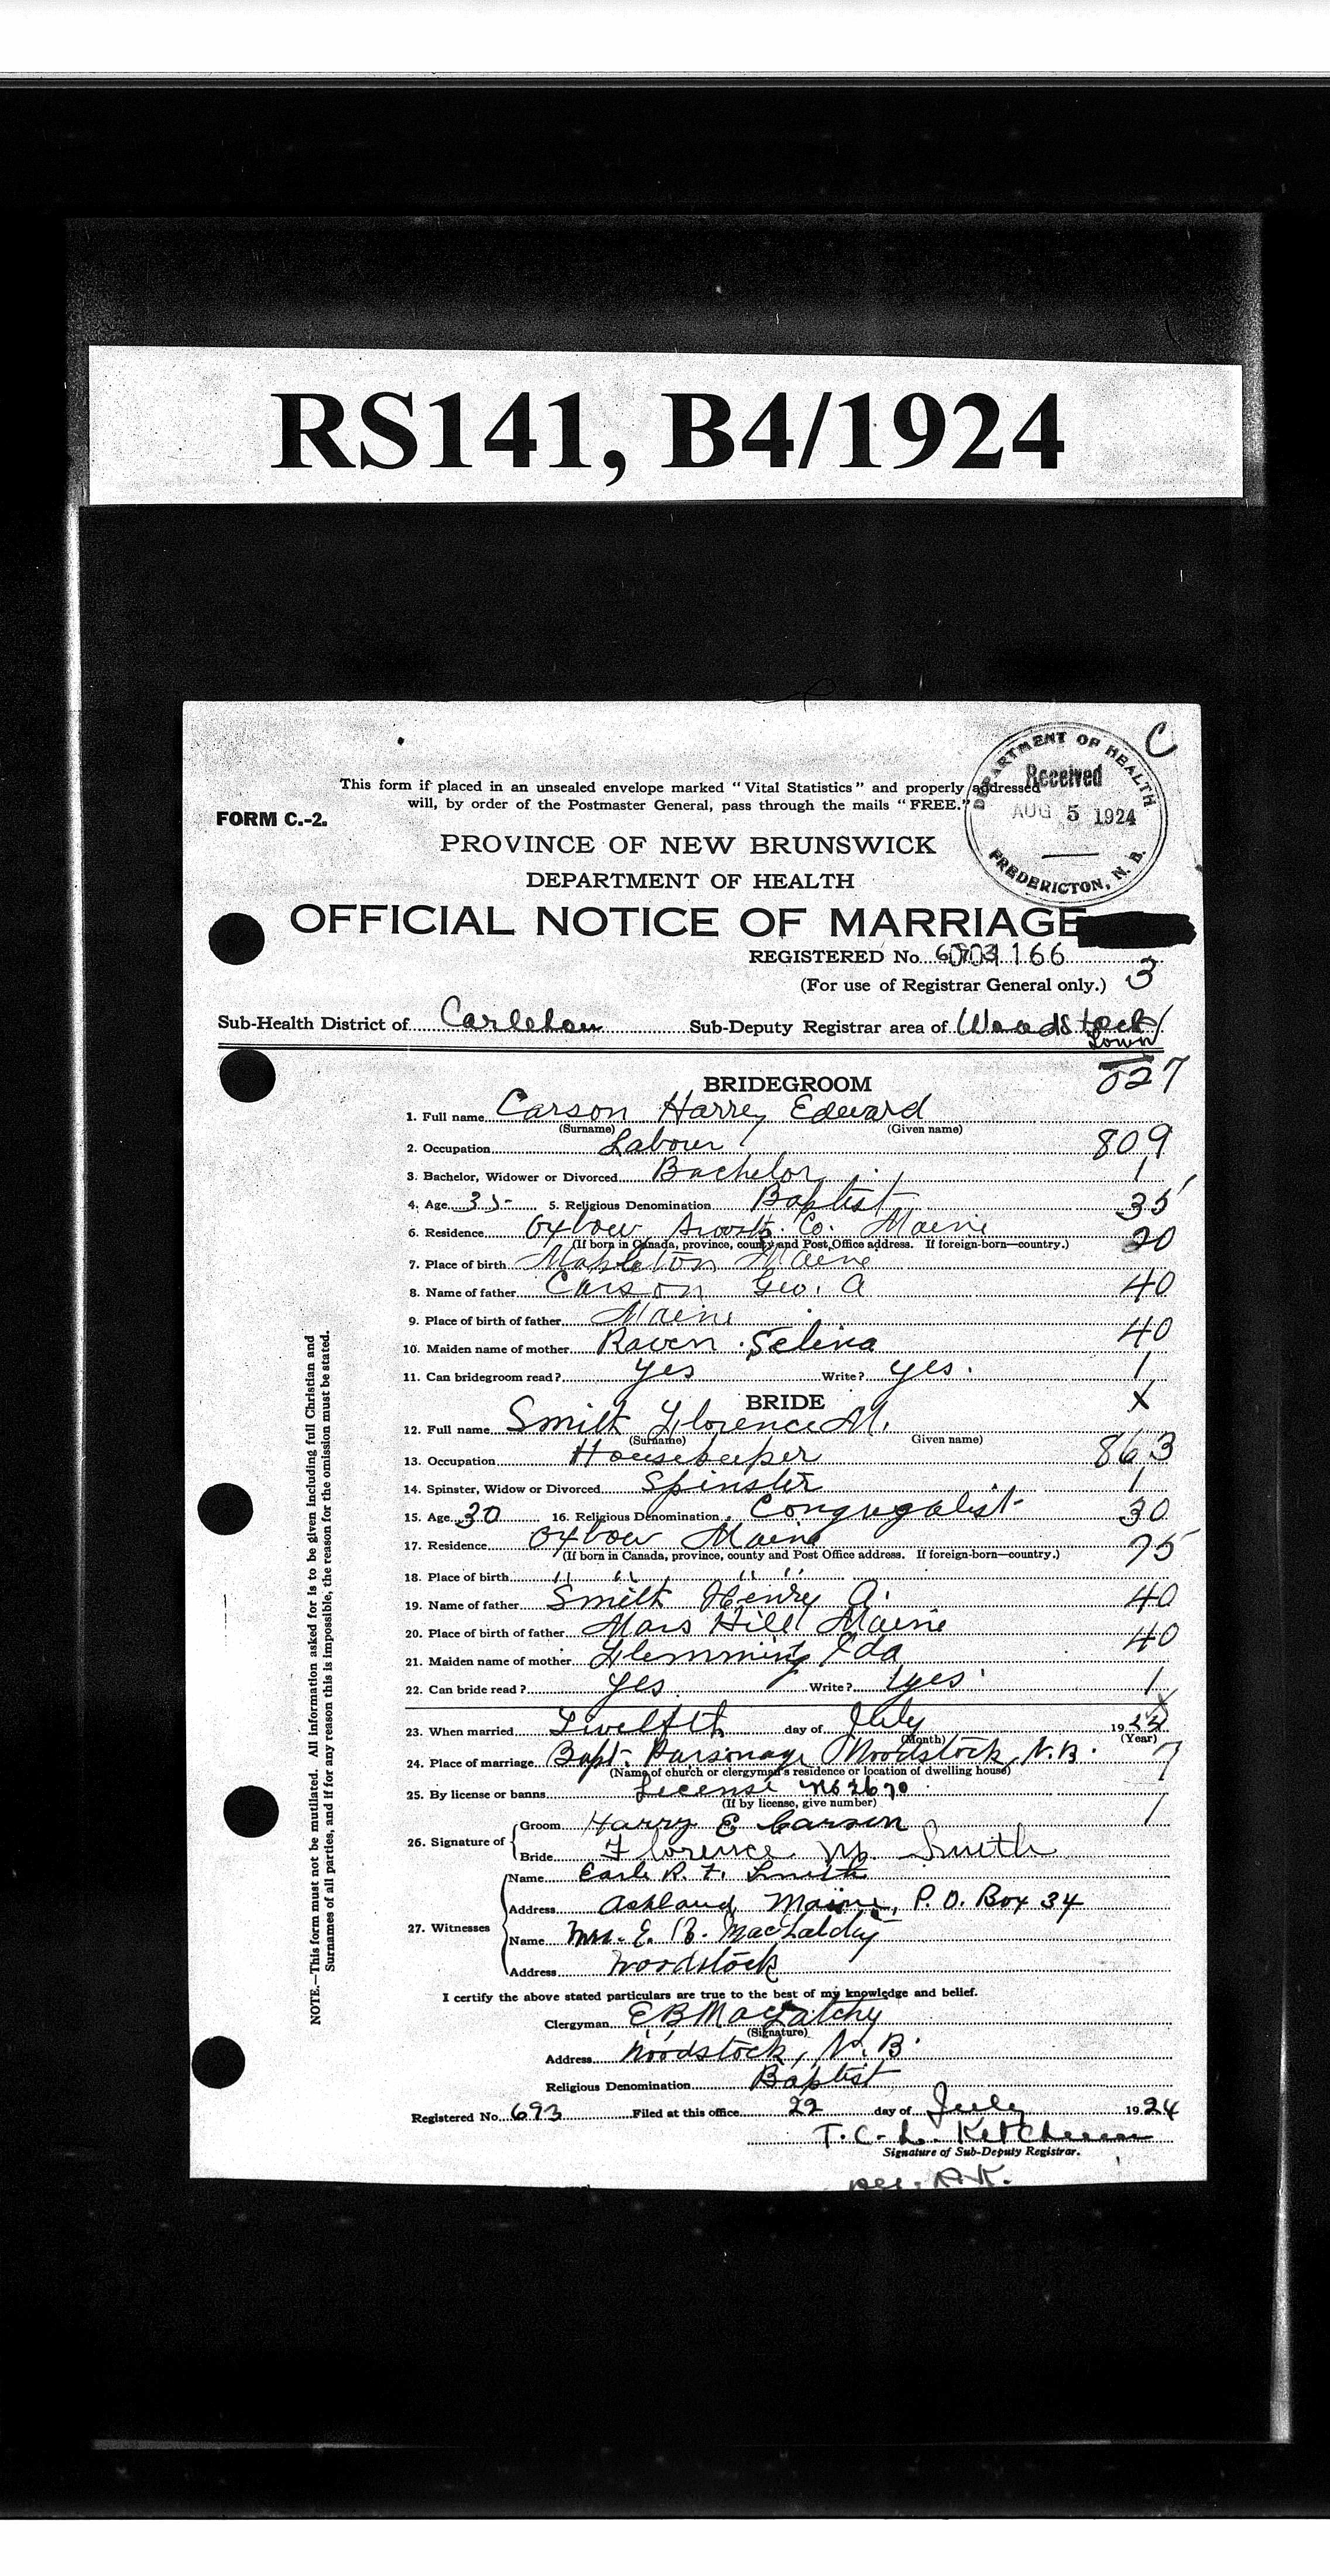 RS141, B4/1924
C
This form if placed in an unsealed envelope marked "Vital Statistics" and properly addressed
will, by order of the Postmaster General, pass through the mails "FREE."
DEPARTMENT OF HEALTH
Received
AUG 5 1924
FREDERICTON, N. B.
FORM C.-2.
PROVINCE OF NEW BRUNSWICK
DEPARTMENT OF HEALTH
OFFICIAL NOTICE OF MARRIAGE
REGISTERED No. 166
(For use of Registrar General only.) 3
Sub-Health District of Carleton Sub-Deputy Registrar area of Woodstock
Town
BRIDEGROOM 027
1. Full name Carson Harry Edward
(Surname) (Given name)
2. Occupation Labour 809
3. Bachelor, Widower or Divorced Bachelor 1
4. Age 35 5. Religious Denomination Baptist 35
6. Residence Oxbow Aroostk. Co. Maine 20
(If born in Canada, province, county and Post Office address. If foreign-born—country.)
7. Place of birth Mapleton Maine
8. Name of father Carson Geo. A 40
9. Place of birth of father Maine
10. Maiden name of mother Raven Selina 40
11. Can bridegroom read? Yes Write? Yes. 1
BRIDE X
12. Full name Smith Florence M.
(Surname) Given name)
13. Occupation Housekeeper 863
14. Spinster, Widow or Divorced Spinster 1
15. Age 30 16. Religious Denomination Congregalist 30
17. Residence Oxbow Maine
(If born in Canada, province, county and Post Office address. If foreign-born—country.)
18. Place of birth " " " "
19. Name of father Smith Henry A. 40
20. Place of birth of father Mars Hill Maine
21. Maiden name of mother Flemming Ida 40
22. Can bride read? Yes. Write? Yes 1
23. When married Twelfth day of July 1924
(Month) (Year)
24. Place of marriage Bapt. Parsonage Woodstock, N.B. 7
(Name of church or clergyman's residence or location of dwelling house)
25. By license or banns License No 2670
(If by license, give number)
26. Signature of Groom Harry E Carson 1
Bride Florence M. Smith
27. Witnesses Name Earle R. F. Smith
Address Ashland Maine, P.O. Box 34
Name Mrs. E. B. MacLatchy
Address Woodstock
I certify the above stated particulars are true to the best of my knowledge and belief.
Clergyman E B MacLatchy
(Signature)
Address Woodstock, N. B.
Religious Denomination Baptist
Registered No. 693 Filed at this office 22 day of July 1924
T. C. L. Ketchum
Signature of Sub-Deputy Registrar.
NOTE.—This form must not be mutilated. All information asked for is to be given including full Christian and
Surnames of all parties, and if for any reason this is impossible, the reason for the omission must be stated.